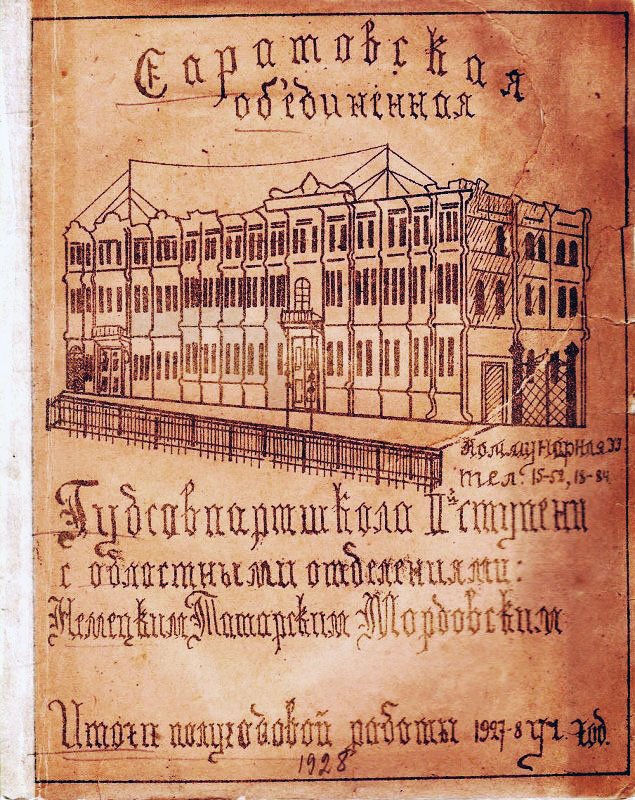 Саратовская
об'единенная
Коммунарная
тел: 15-52,
Губсовпартшкола IIй ступени
с областными отделениями:
Немецким Татарским Мордовским
Итоги полугодовой работы 1927-8 уч. год.
1928